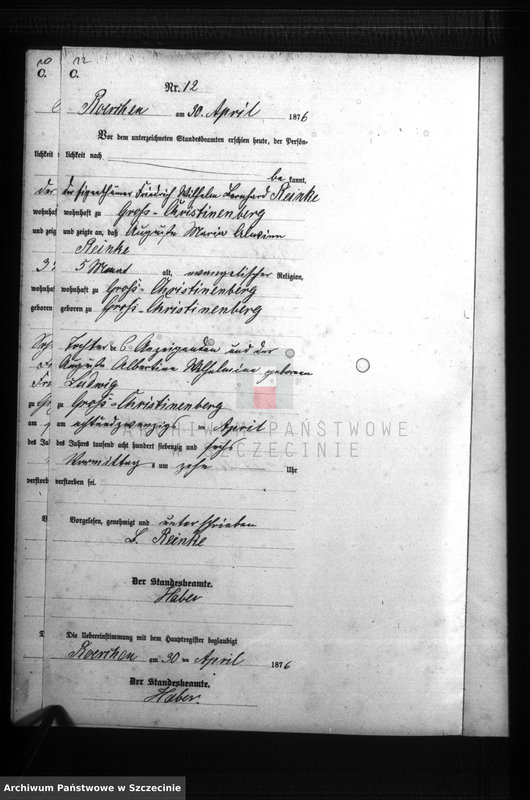 C.
Nr. 12
Roerchen am 30. April 1876
Vor dem unterzeichneten Standesbeamten erschien heute, der Persön-
lichkeit nach
be kannt,
der Eigenthümer Friedrich Wilhelm Bernhard Reinke
wohnhaft zu Groß-Christinenberg
und zeigte an, daß Auguste Maria Alwine
Reinke
5 Monat alt, evangelischer Religion,
wohnhaft zu Groß-Christinenberg
geboren zu Groß-Christinenberg
Tochter Anzeigenden und der
Auguste Albertine Wilhelmine geborenen
Ludwig
zu Groß-Christinenberg
am achtundzwanzigsten April
des Jahres tausend acht hundert siebenzig und sechs
Vormittags um zehn Uhr
verstorben sei.
Vorgelesen, genehmigt und unterschrieben
B. Reinke
Der Standesbeamte.
Haber
Die Uebereinstimmung mit dem Hauptregister beglaubigt
Roerchen am 30 ten April 1876
Der Standesbeamte.
Haber.
ARCHIWUM PAŃSTWOWE
W SZCZECINIE
Archiwum Państwowe w Szczecinie